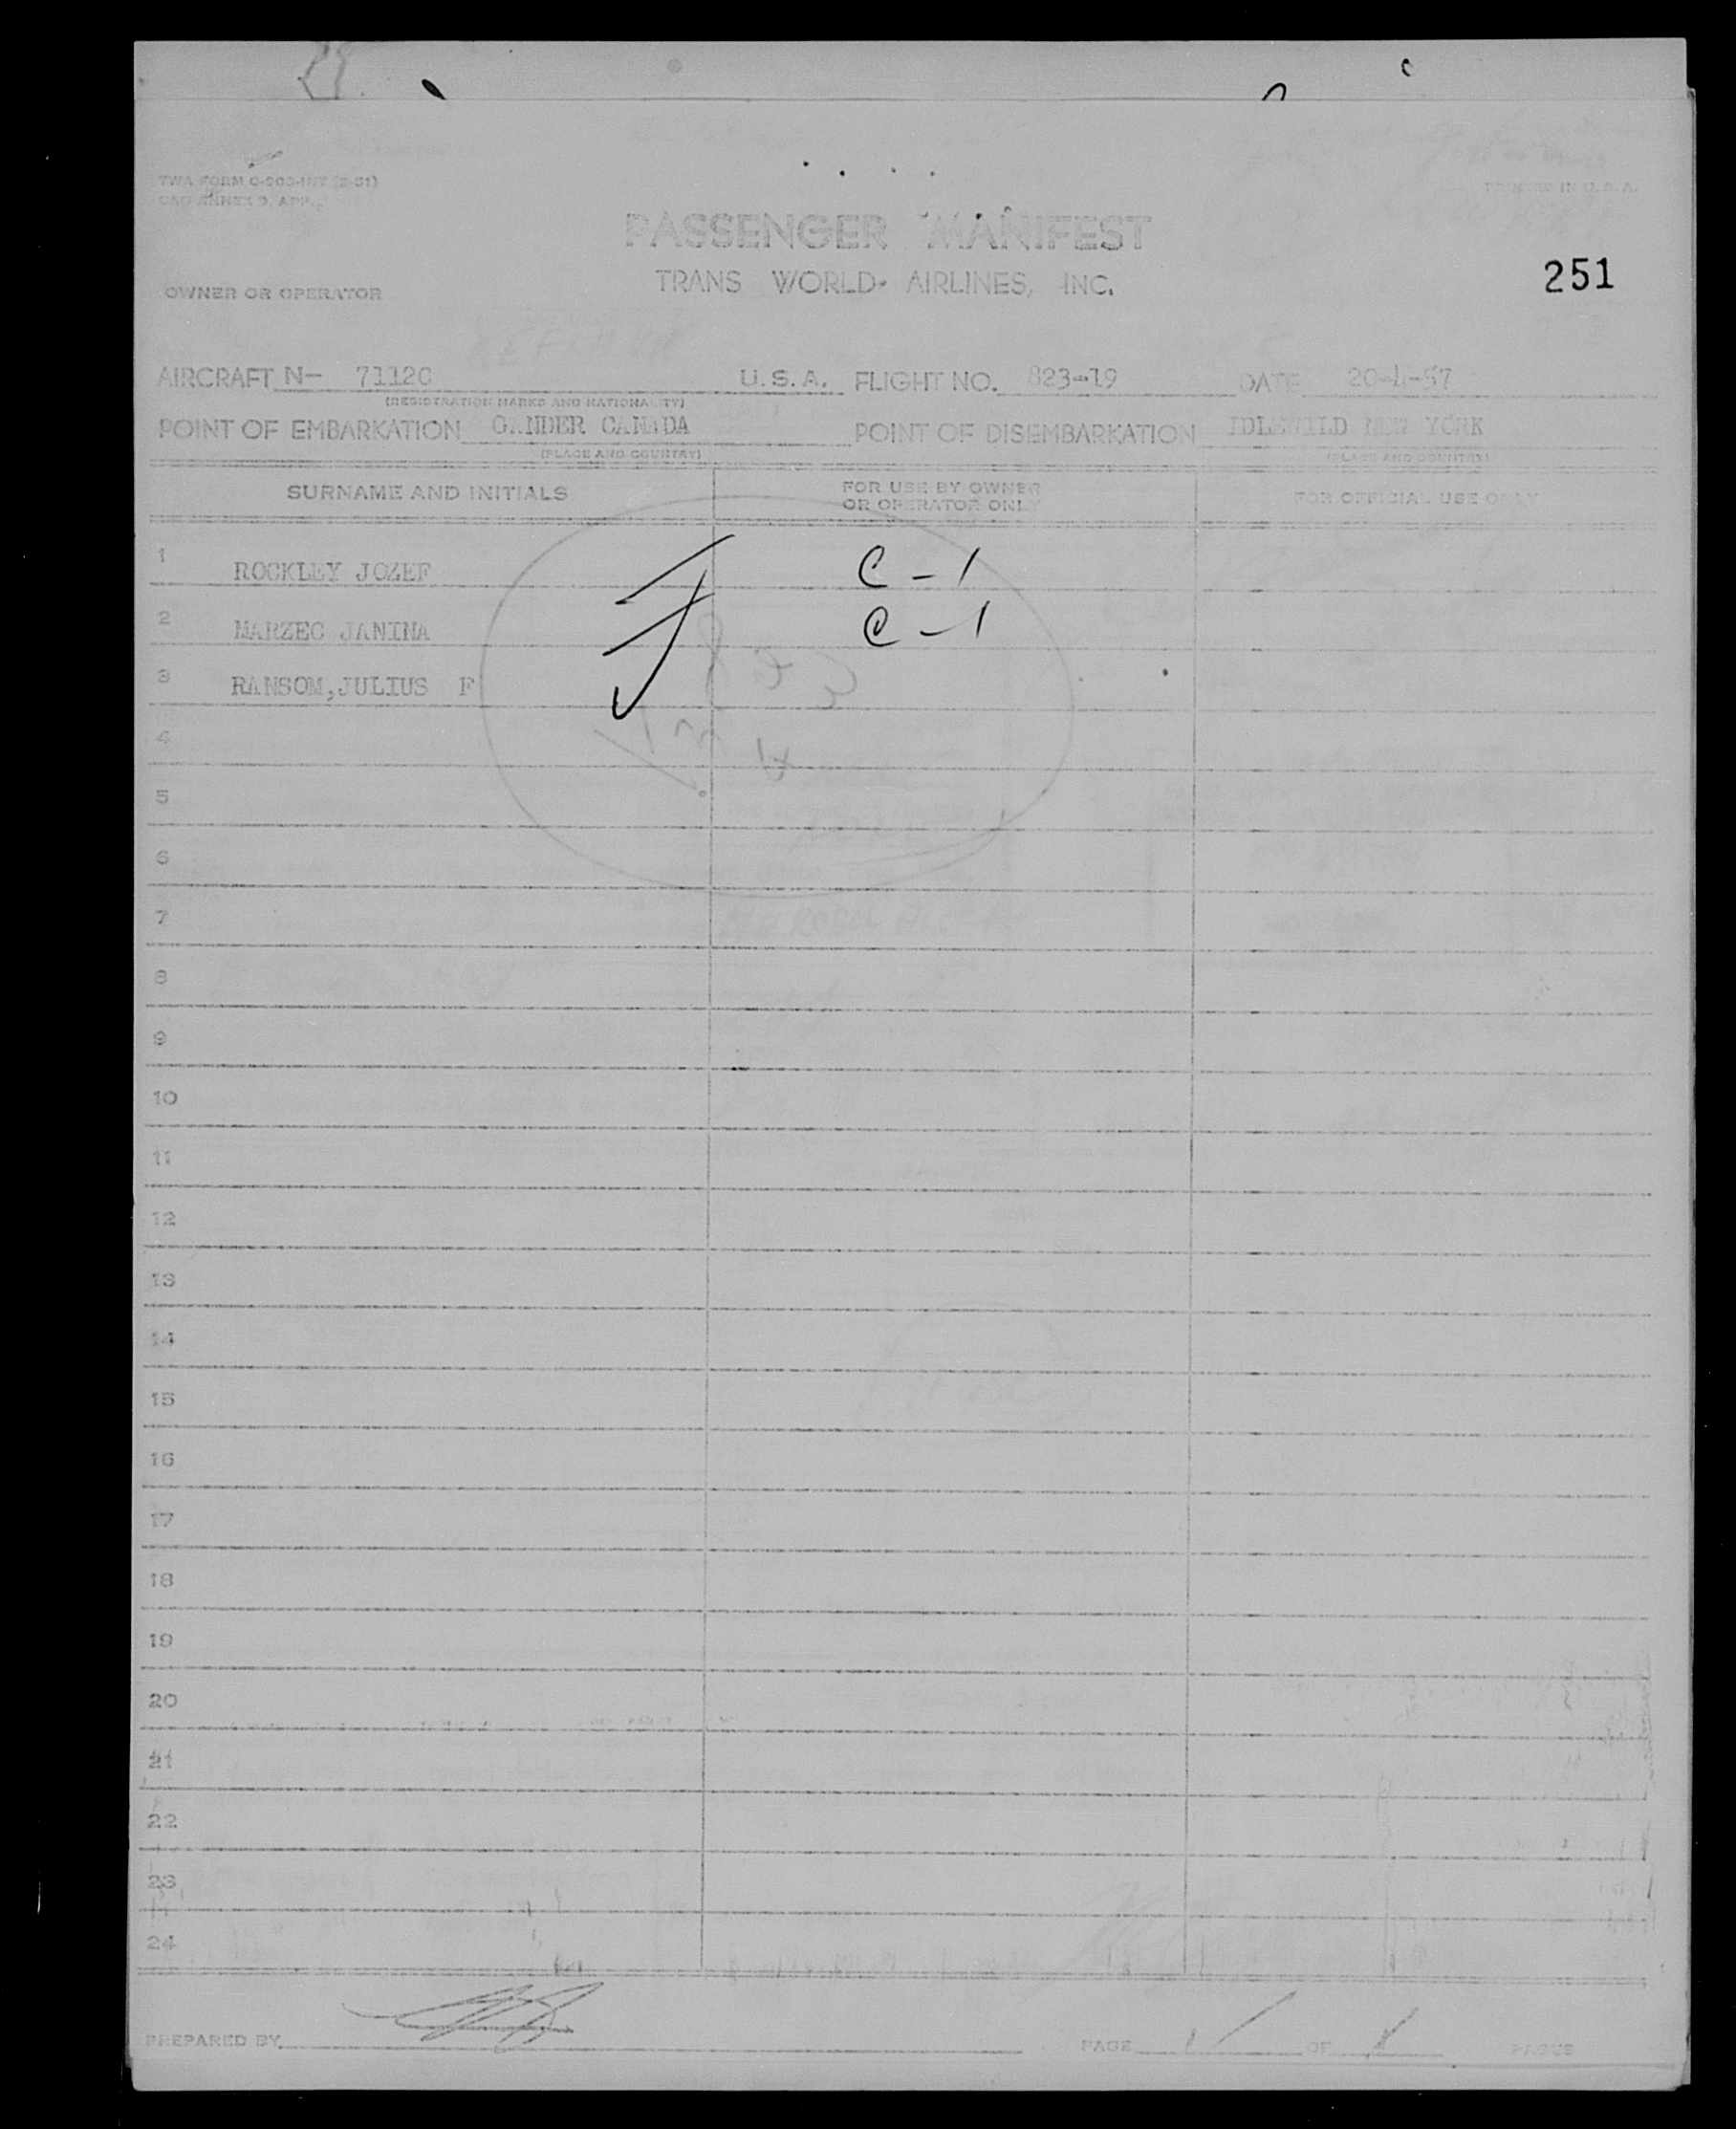 TWA FORM O-
PRINTED IN U.S.A.
PASSENGER MANIFEST
TRANS WORLD AIRLINES, INC.
251
OWNER OR OPERATOR
AIRCRAFT N- 7112C U.S.A. FLIGHT NO. 823-19 DATE 20-4-57
(REGISTRATION MARKS AND NATIONALITY)
POINT OF EMBARKATION GANDER CANADA POINT OF DISEMBARKATION IDLEWILD NEW YORK
(PLACE AND COUNTRY) (PLACE AND COUNTRY)
SURNAME AND INITIALS FOR USE BY OWNER OR OPERATOR ONLY FOR OFFICIAL USE ONLY
1 ROCKLEY JOZEF C-1
2 MARZEC JANINA C-1
3 RANSOM,JULIUS F
4
5
6
7
8
9
10
11
12
13
14
15
16
17
18
19
20
21
22
23
24
PREPARED BY PAGE 1 OF 1 PAGES